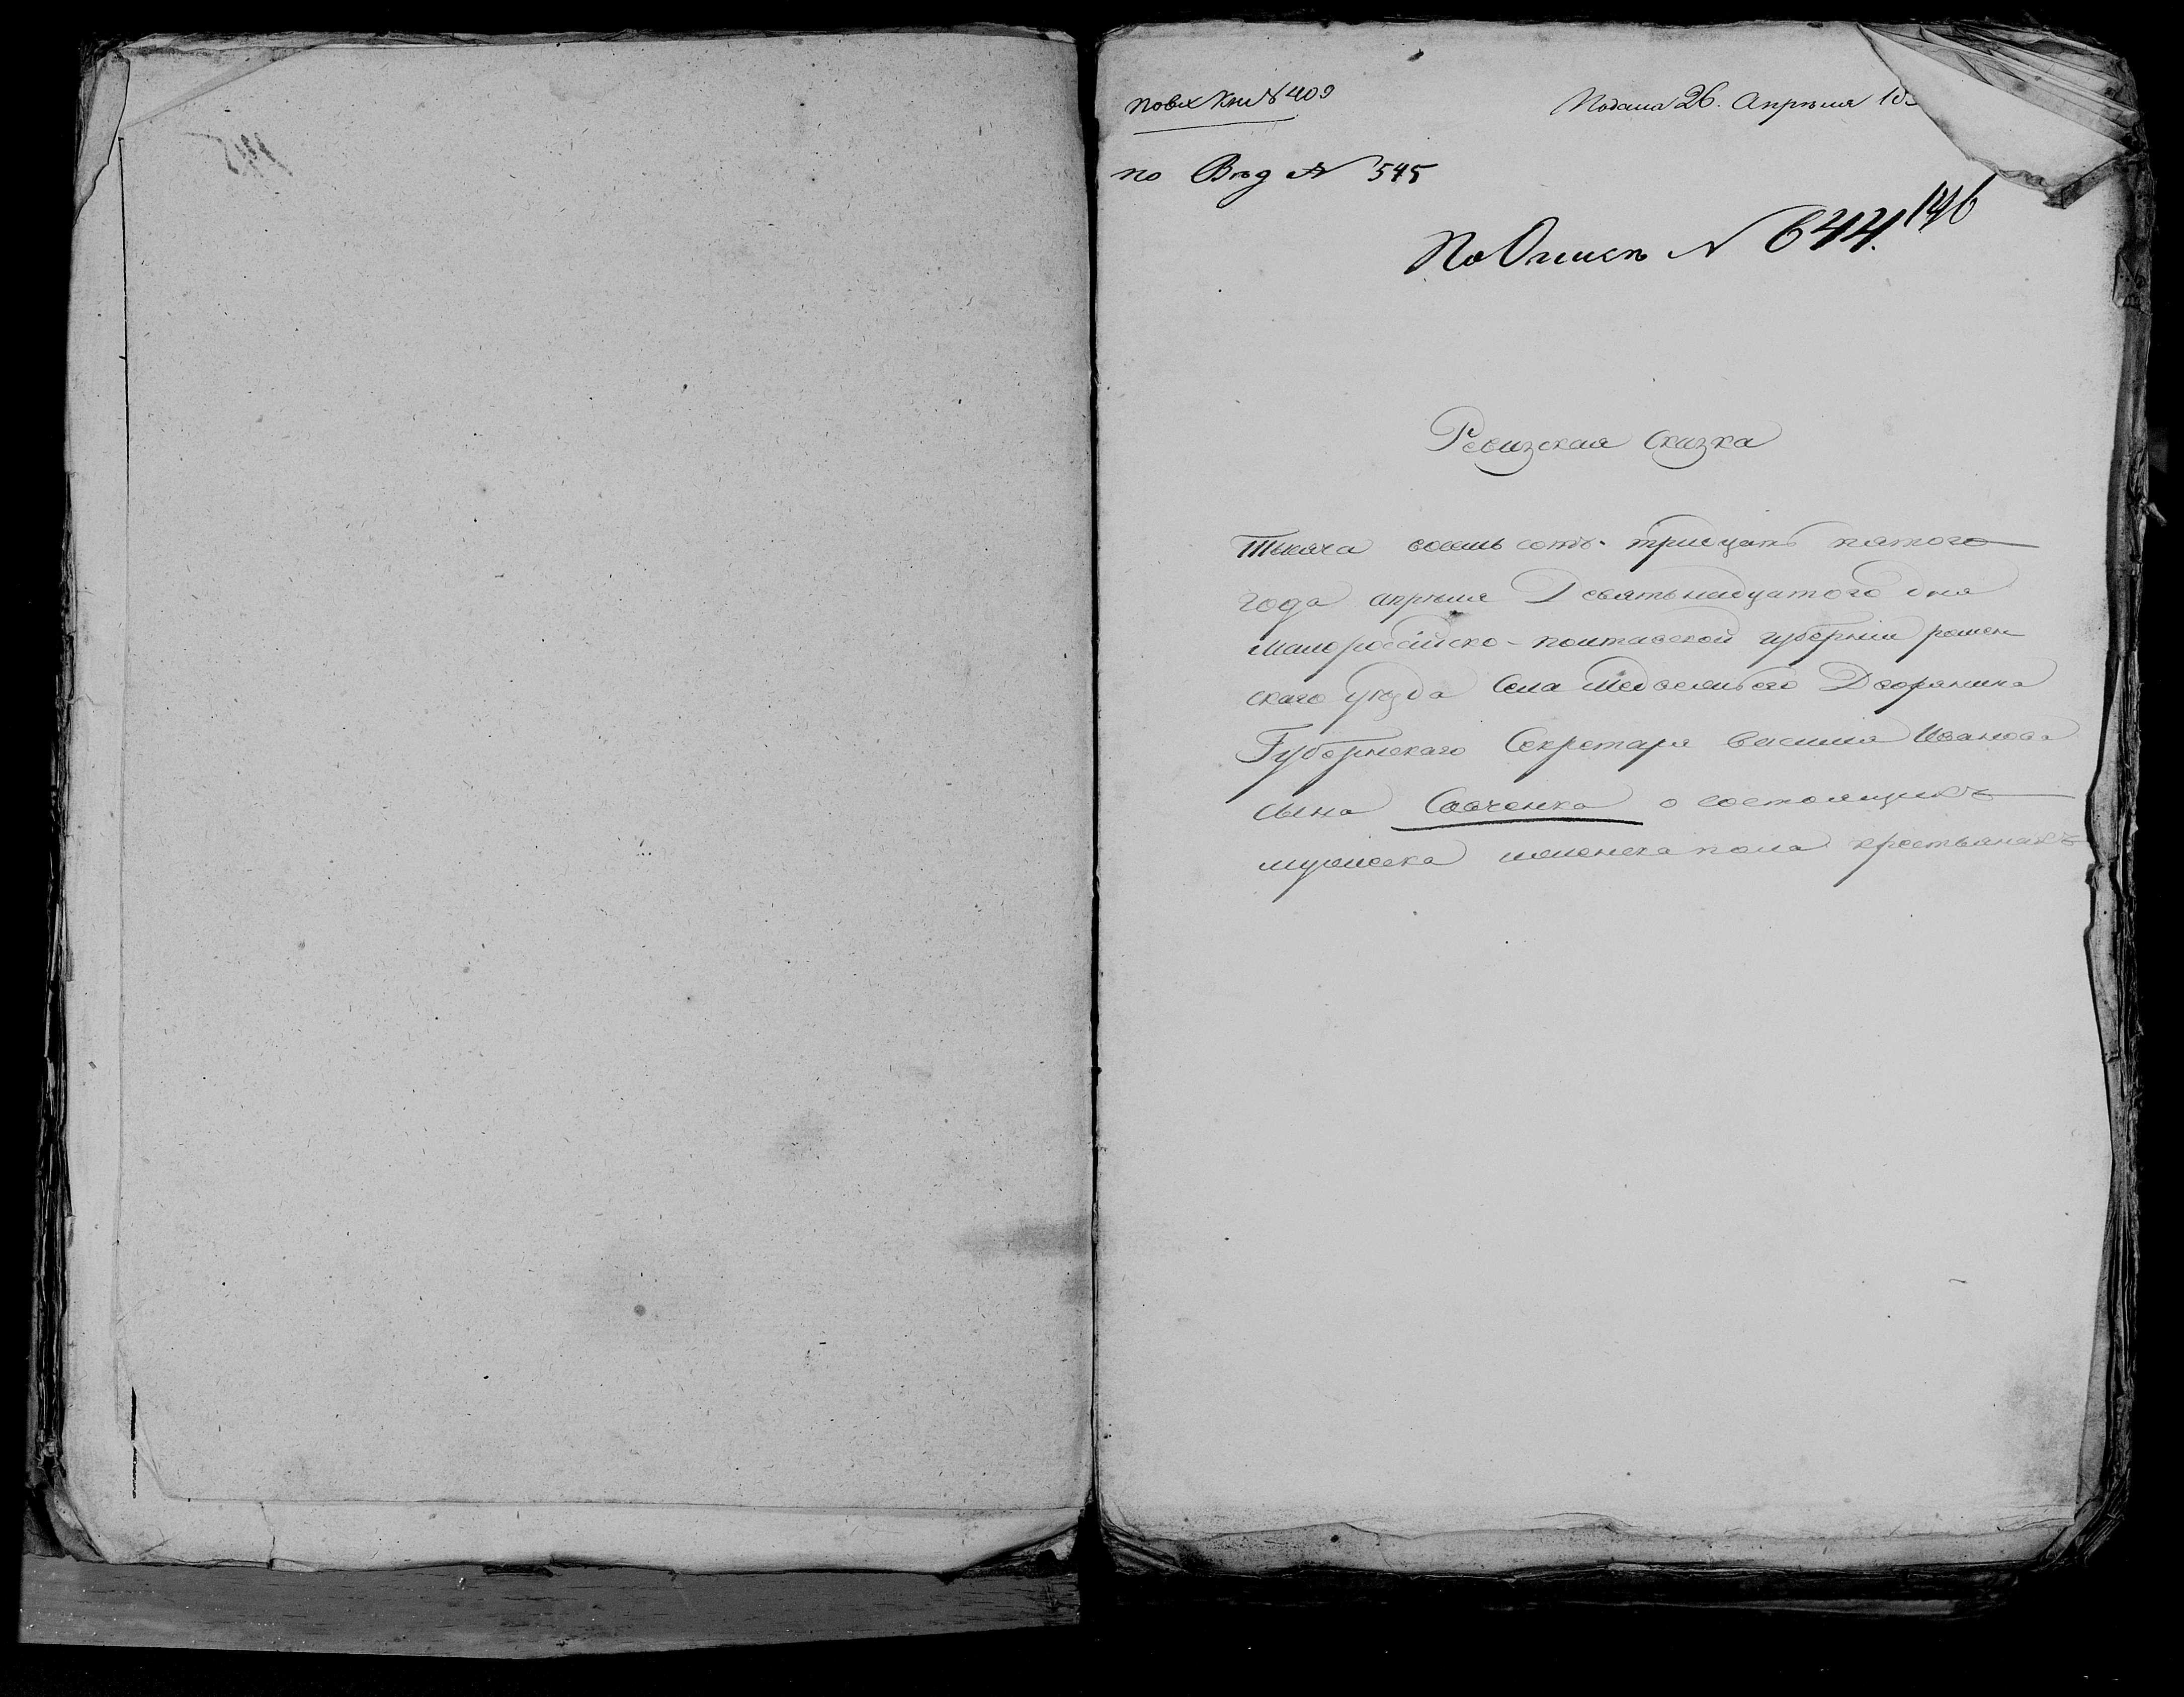 по вх Кни № 409
Подана 26. Апрѣля 183
по Вѣд № 545
По Описи № 644.
146
Ревизская Сказка
Тысяча восемь сотъ тритцать пятого
года апрѣля Девятьнадцатого дня
Малоросійско-полтавской губерніи ромен
скаго уѣзда Села Медвежьего Дворянина
Губернскаго Секретаря Василия Иванова
сына Савченка о состоящихъ
мужеска и женска пола крестьянахъ